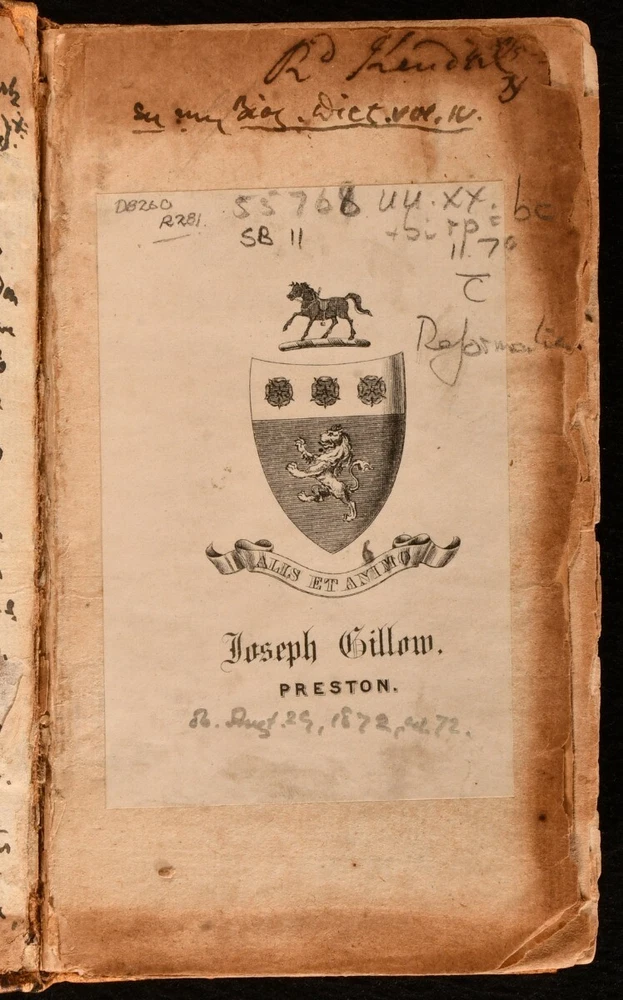 Rd Kendal
in my Biog. Dict. vol. IV.
D8260
R281.
55768 uu.xx. be
SB 11
11.70
c
Reformation
ALIS ET ANIMO
Joseph Gillow.
PRESTON.
Augt. 29, 1872, 72.